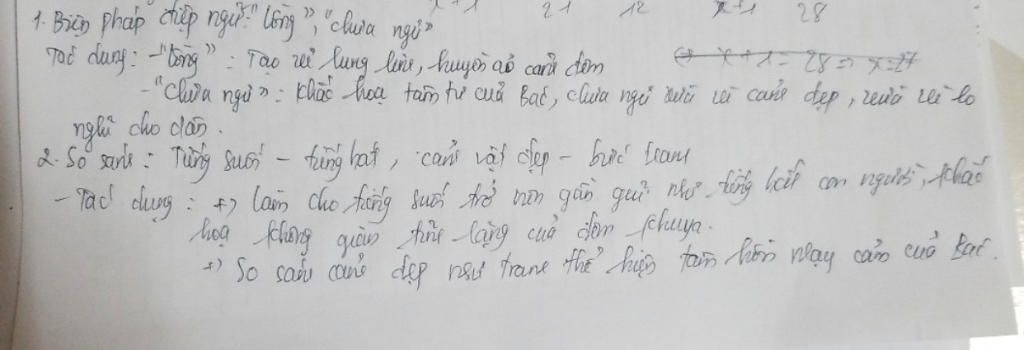 x+1 21 12 x+1 28
1. Biện pháp điệp ngữ: "lồng", "chưa ngủ"
x+1 = 28 => x=27
Tác dụng: - "lồng": Tạo vẻ lung linh, huyền ảo cảnh đêm
- "Chưa ngủ": khắc hoạ tâm tư của Bác, chưa ngủ vừa vì cảnh đẹp, vừa vì lo
nghĩ cho dân.
2. So sánh: Tiếng suối - tiếng hát, cảnh vật đẹp - bức tranh
- Tác dụng: +) làm cho tiếng suối trở nên gần gũi như tiếng hát con người, khắc
hoạ không gian tĩnh lặng của đêm khuya.
+) So sánh cảnh đẹp như tranh thể hiện tâm hồn nhạy cảm của Bác.